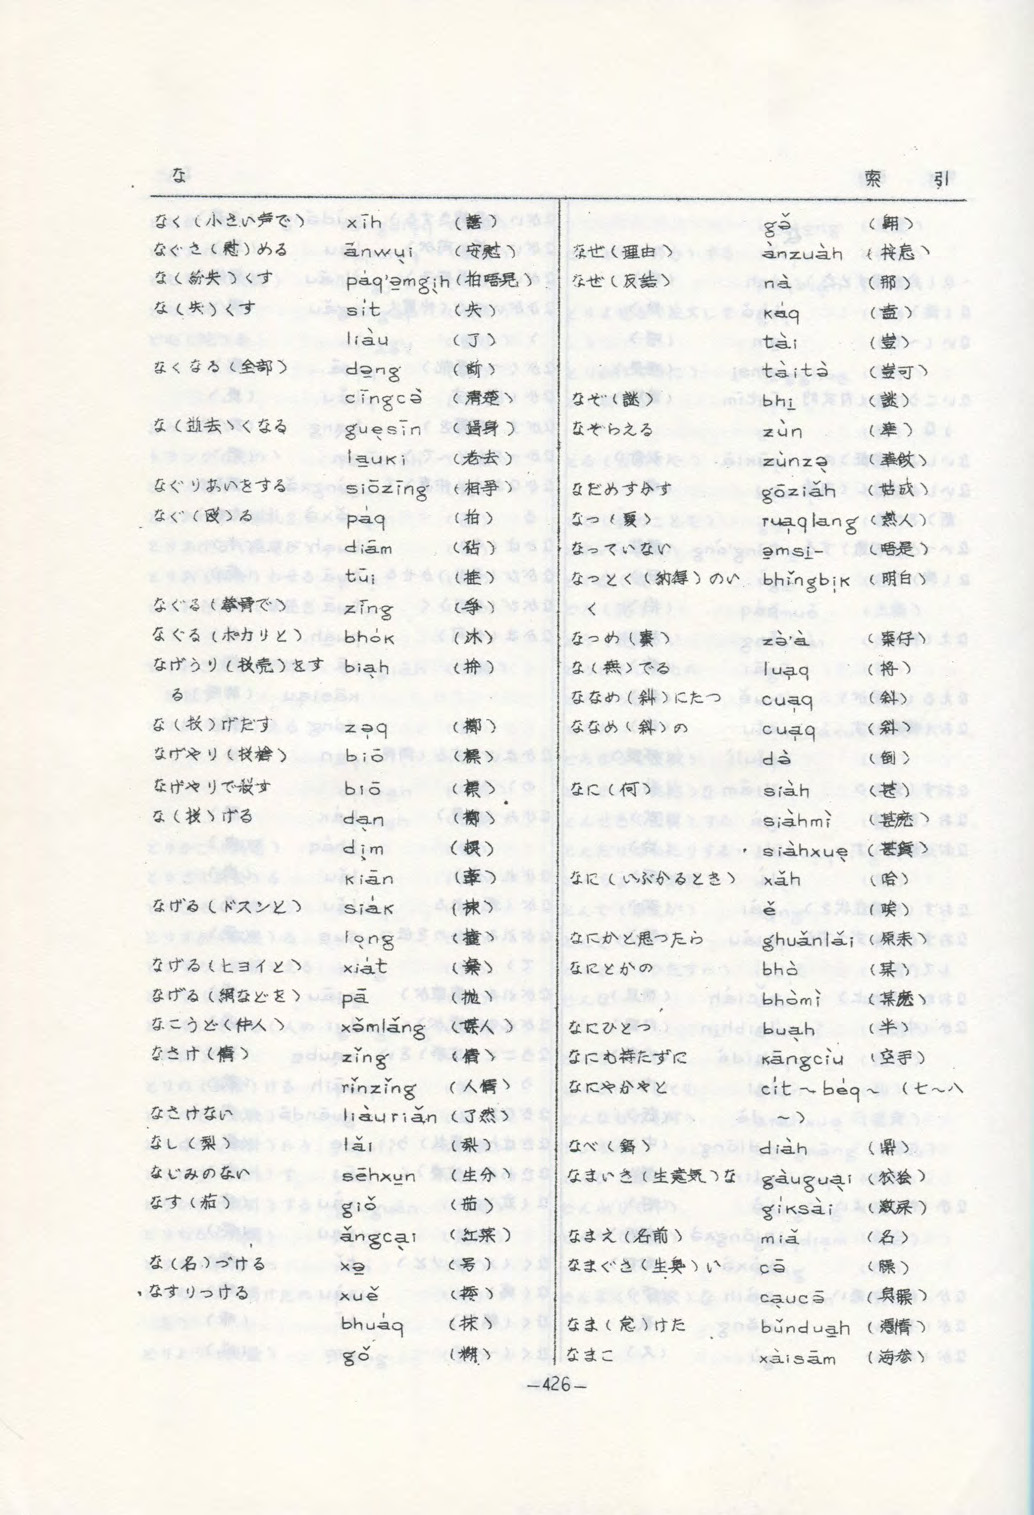 な
索 引
なく(小さい声で) xīh
なぐさ(慰)める ānwụi (安慰)
な(紛失)くす pàq'ə̱mgịh (拍唔見)
な(失)くす sít (失)
liàu (了)
なくなる(全部) də̱ng (断)
cīngcə̀ (清楚)
な(逝去)くなる guẹsīn (過身)
la̱uki (老去)
なぐりあいをする siōzīng (相爭)
なぐ(殴)る páq (拍)
diām (砧)
tūi
なぐる(拳骨で) zīng
なぐる(ポカリと) bhók (沐)
なげうり(投売)をす biạh (拚)
る
な(投)げだす zə̣q (擲)
なげやり(投槍) biō (標)
なげやりで殺す biō (標)
な(投)げる dạn
dịm
kiān
なげる(ドスンと) siák (摔)
lọng (撞)
なげる(ヒヨイと) xiát
なげる(網などを) pā (抛)
なこうど(仲人) xə̌mlǎng
なさけ(情) zǐng (情)
rǐnzǐng (人情)
なさけない liàuriǎn (了然)
なし(梨) lǎi (梨)
なじみのない sēhxu̱n (生分)
なす(茄) giǒ (茄)
ǎngcại (紅菜)
な(名)づける xə̱ (号)
なすりつける xuě
bhuáq (抹)
gǒ (糊)
gə̌ (翱)
なぜ(理由) ànzuàh
なぜ(反詰) nà (那)
káq (盍)
tài (豈)
tàitə̀ (豈可)
なぞ(謎) bhi̱ (謎)
なぞらえる zùn (準)
zùnzə̣ (準做)
なだめすかす gōziǎh
なつ(夏) ruạqlang (熱人)
なっていない ə̱msi̱- (唔是)
なっとく(納得)のい bhǐngbịk (明白)
く
なつめ(棗) zə̀'à (棗仔)
な(撫)でる luạq (捋)
ななめ(斜)にたつ cuạq (斜)
ななめ(斜)の cuạq (斜)
də̀ (倒)
なに(何) siàh (甚)
siàhmì (甚麽)
siàhxuẹ (甚貨)
なに(いぶかるとき) xǎh (哈)
ě (唉)
なにかと思つたら ghuǎnlǎi (原来)
なにとかの bhò (某)
bhòmì (某麽)
なにひとつ buạh (半)
なにも持たずに kāngciù (空手)
なにやかやと cít~béq~ (七~八
~)
なべ(鍋) diàh (鼎)
なまいき(生意気)な gàuguại (狡獪)
gíksài (激屎)
なまえ(名前) miǎ (名)
なまぐさ(生臭)い cə̄ (臊)
cạucə̄ (臭臊)
なま(怠)けた bǔnduạh
なまこ xàisām (海参)
—426—